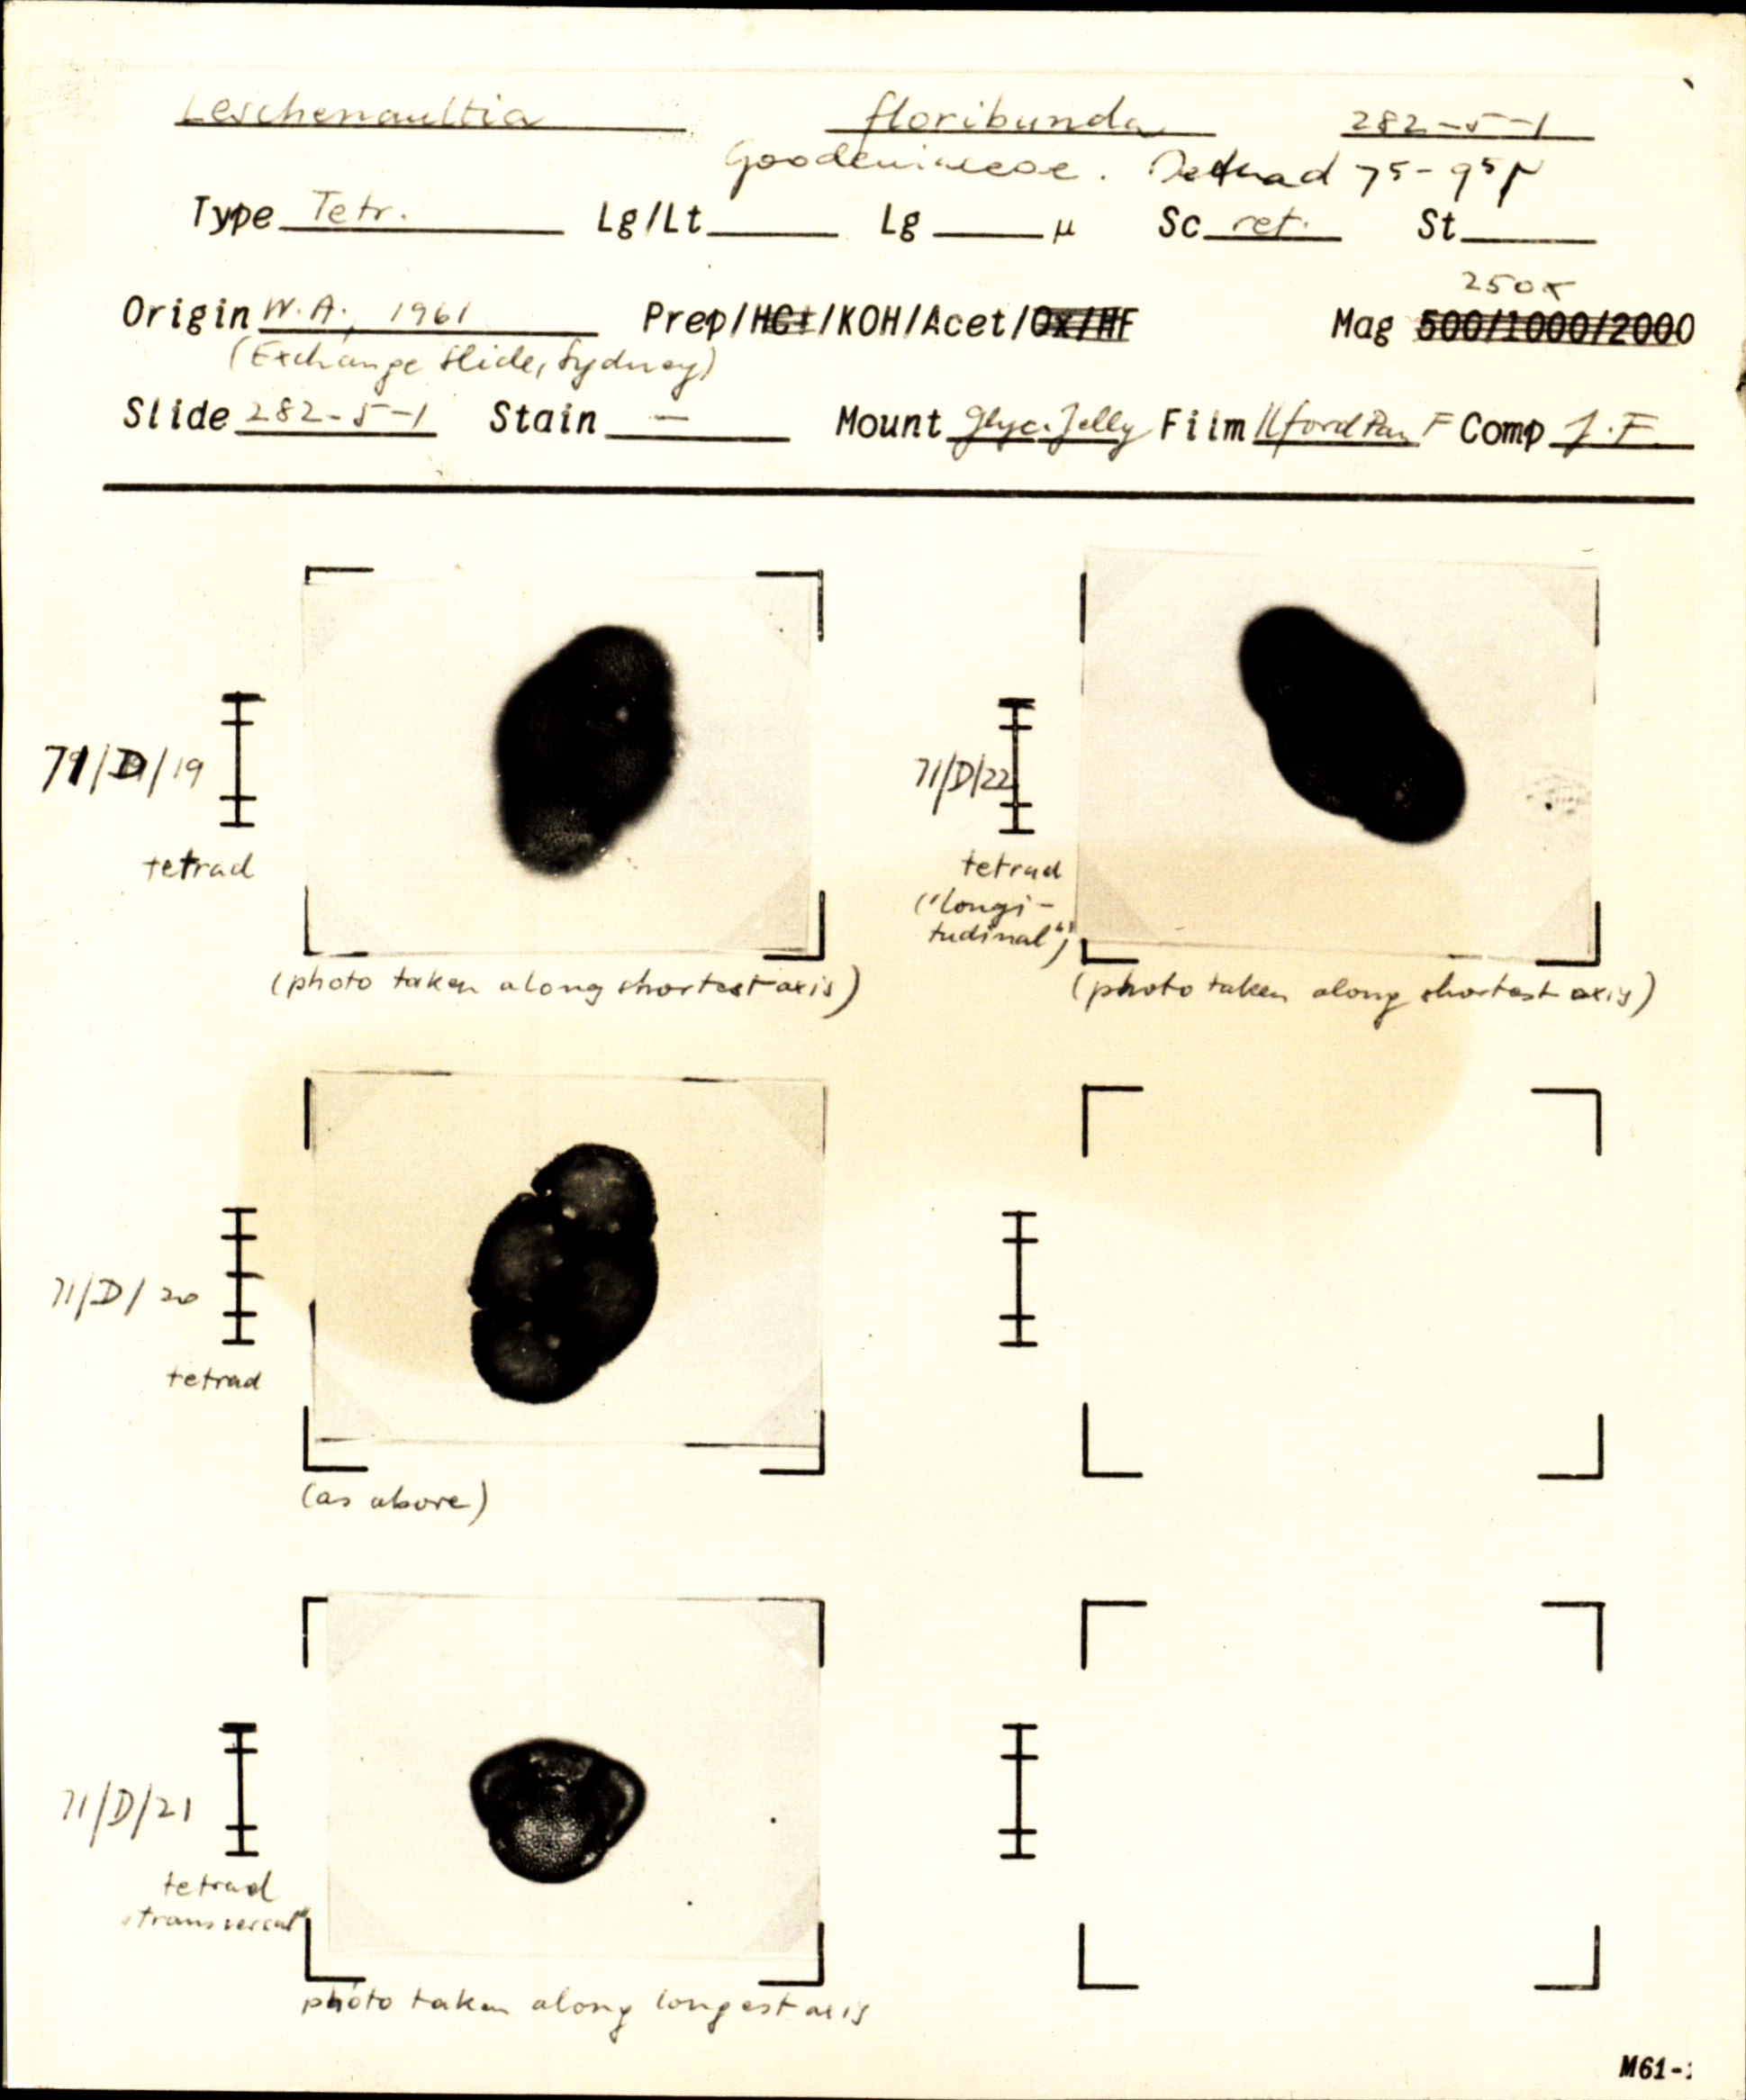 Leschenaultia floribunda 282-5-1
Goodeniaceae. Tetrad 75-95μ
Type Tetr. Lg/Lt Lg μ Sc ret. St
250x
Origin W.A., 1961 Prep/HCl/KOH/Acet/Ox/HF Mag 500/1000/2000
(Exchange Slide, Sydney)
Slide 282-5-1 Stain — Mount Glyc. Jelly Film Ilford Pan F Comp J.F.
71/D/19
tetrad
(photo taken along shortest axis)
71/D/22
tetrad
("longi-
tudinal")
(photo taken along shortest axis)
71/D/20
tetrad
(as above)
71/D/21
tetrad
"transversal"
photo taken along longest axis
M61-